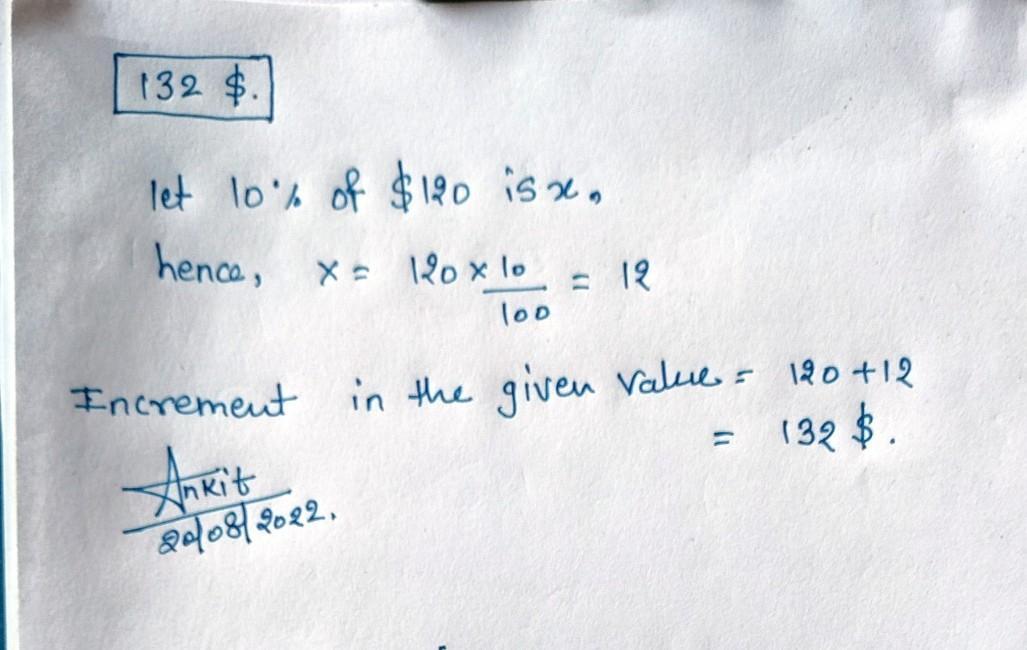 132 $.
let 10% of $120 is x.
hence, x = 120 x 10/100 = 12
Increment in the given value = 120 + 12
= 132 $.
Ankit
20/08/2022.